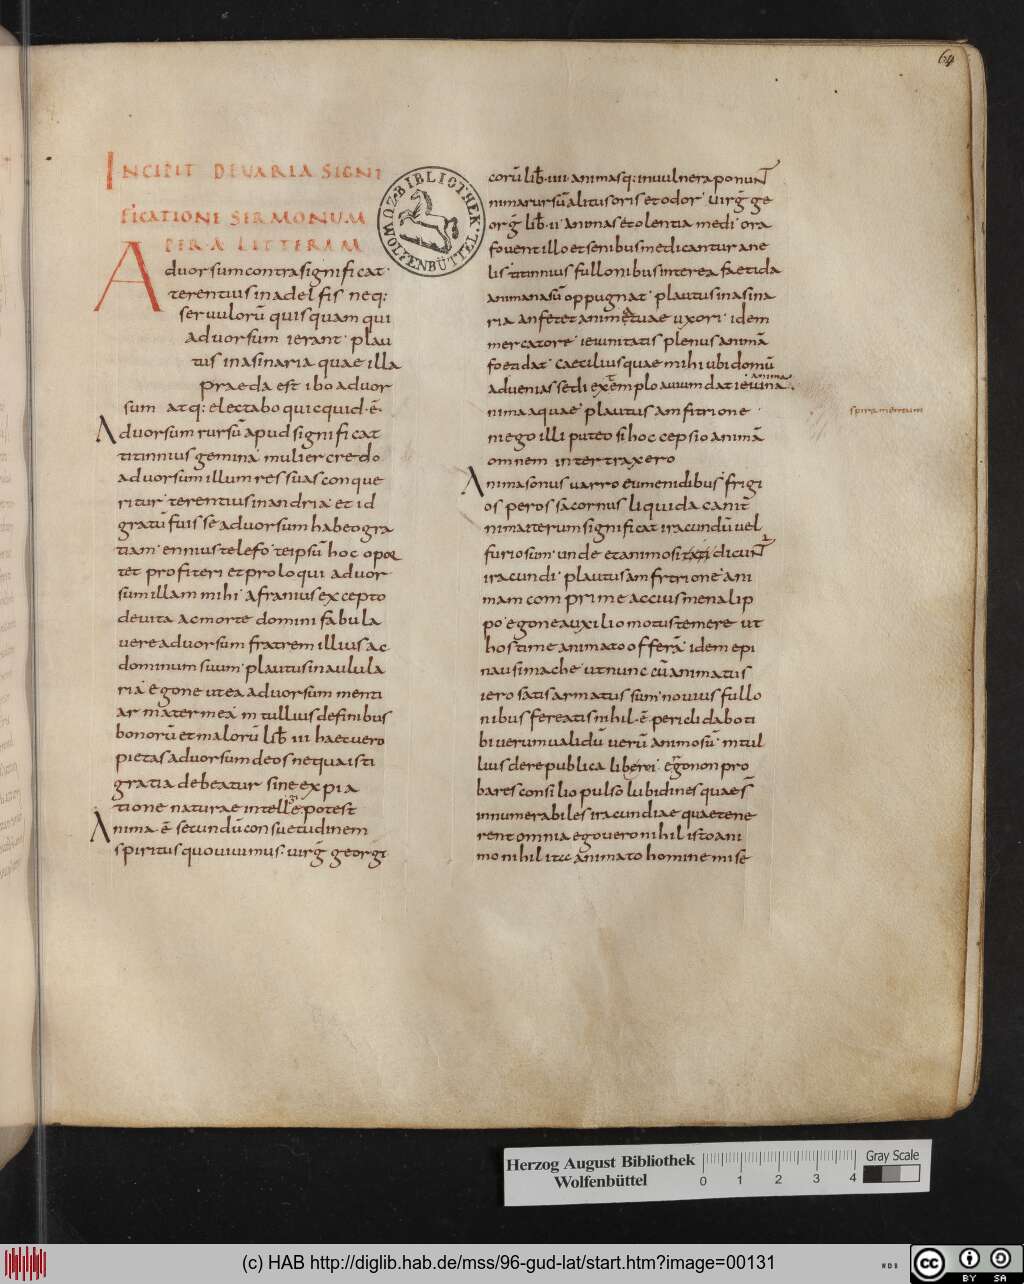 64
INCIPIT DE VARIA SIGNI
FICATIONE SERMONUM
PER A LITTERAM
Aduorsum contra significat
terentius in adelfis neq:
seruulorū quisquam qui
aduorsum ierant· plau
tus in asinaria quae illa
praeda est ibo aduor
sum atq: electabo quicquid·ē·
Aduorsum rursū apud significat
titinnius gemina· mulier credo
aduorsum illum res suas conque
ritur· terentius in andria· et id
gratū fuisse aduorsum habeo gra
tiam· ennius telefo· te ipsū hoc opor
tet profiteri et proloqui aduor
sum illam mihi· afranius excepto
deuita ac morte domini fabula
uere aduorsum fratrem illius ac
dominum suum· plautus in aulula
ria· egone ut ea aduorsum menti
ar mater mea· m tullius de finibus
bonorū et malorū lib· iii haec uero
pietas aduorsum deos nec quaisti
gratia debeatur sine expia
tione naturae intelle: potest
Anima·ē· secundū consuetudinem
spiritus quo uiuimus· uirg̅ georgi
corū lib· iiii· animasq: in uulnera ponunt
nima rursū alitus oris et odor· uirg̅ ge
org̅ lib· ii· animas et olentia medi· ora
fouent illo et senibus medicantur ane
lis· titinnius fullonibus interea faetida
anima nasū oppugnat· plautus in asina
ria an fetet anime tuae uxori· idem
mercatore· ieiunitatis plenus animā
foetidat· caecilius quae mihi ubi domū
aduenias sedi extemplo auium dat ieiunā·
anima
nima aquae· plautus amfitrione·
spiramentum
niego illi puteo si hoc cepsio animā
omnem intertraxero
Anima sonus uarro eumenidibus· frigi
os per os sacornus liquida canit
nima iterum significat iracundū uel
furiosum· unde et animosi dicunt
iracundi· plautus amfitrione· ani
mam comprime accius menalip
po· egone auxilio motus temere ut
hostime animato offerā· idem epi
nausimache· ut nunc cū animatus
iero satis armatus sum· nouius fullo
nibus fereatis nihil·ē· periclidaboti
bi uerum ualidū uerū animosū· m tul
lius de republica liberei· ergo non pro
bares consilio pulso lubidines quae s
innumerabiles iracundiae quae tene
rent omnia ego uero nihil isto ani
mo nihil itcc animato homine mise
BIBLIOTHEK· ZU WOLFENBÜTTEL·
Herzog August Bibliothek
Wolfenbüttel
0 1 2 3 4
Gray Scale
(c) HAB http://diglib.hab.de/mss/96-gud-lat/start.htm?image=00131
WDB
cc BY SA